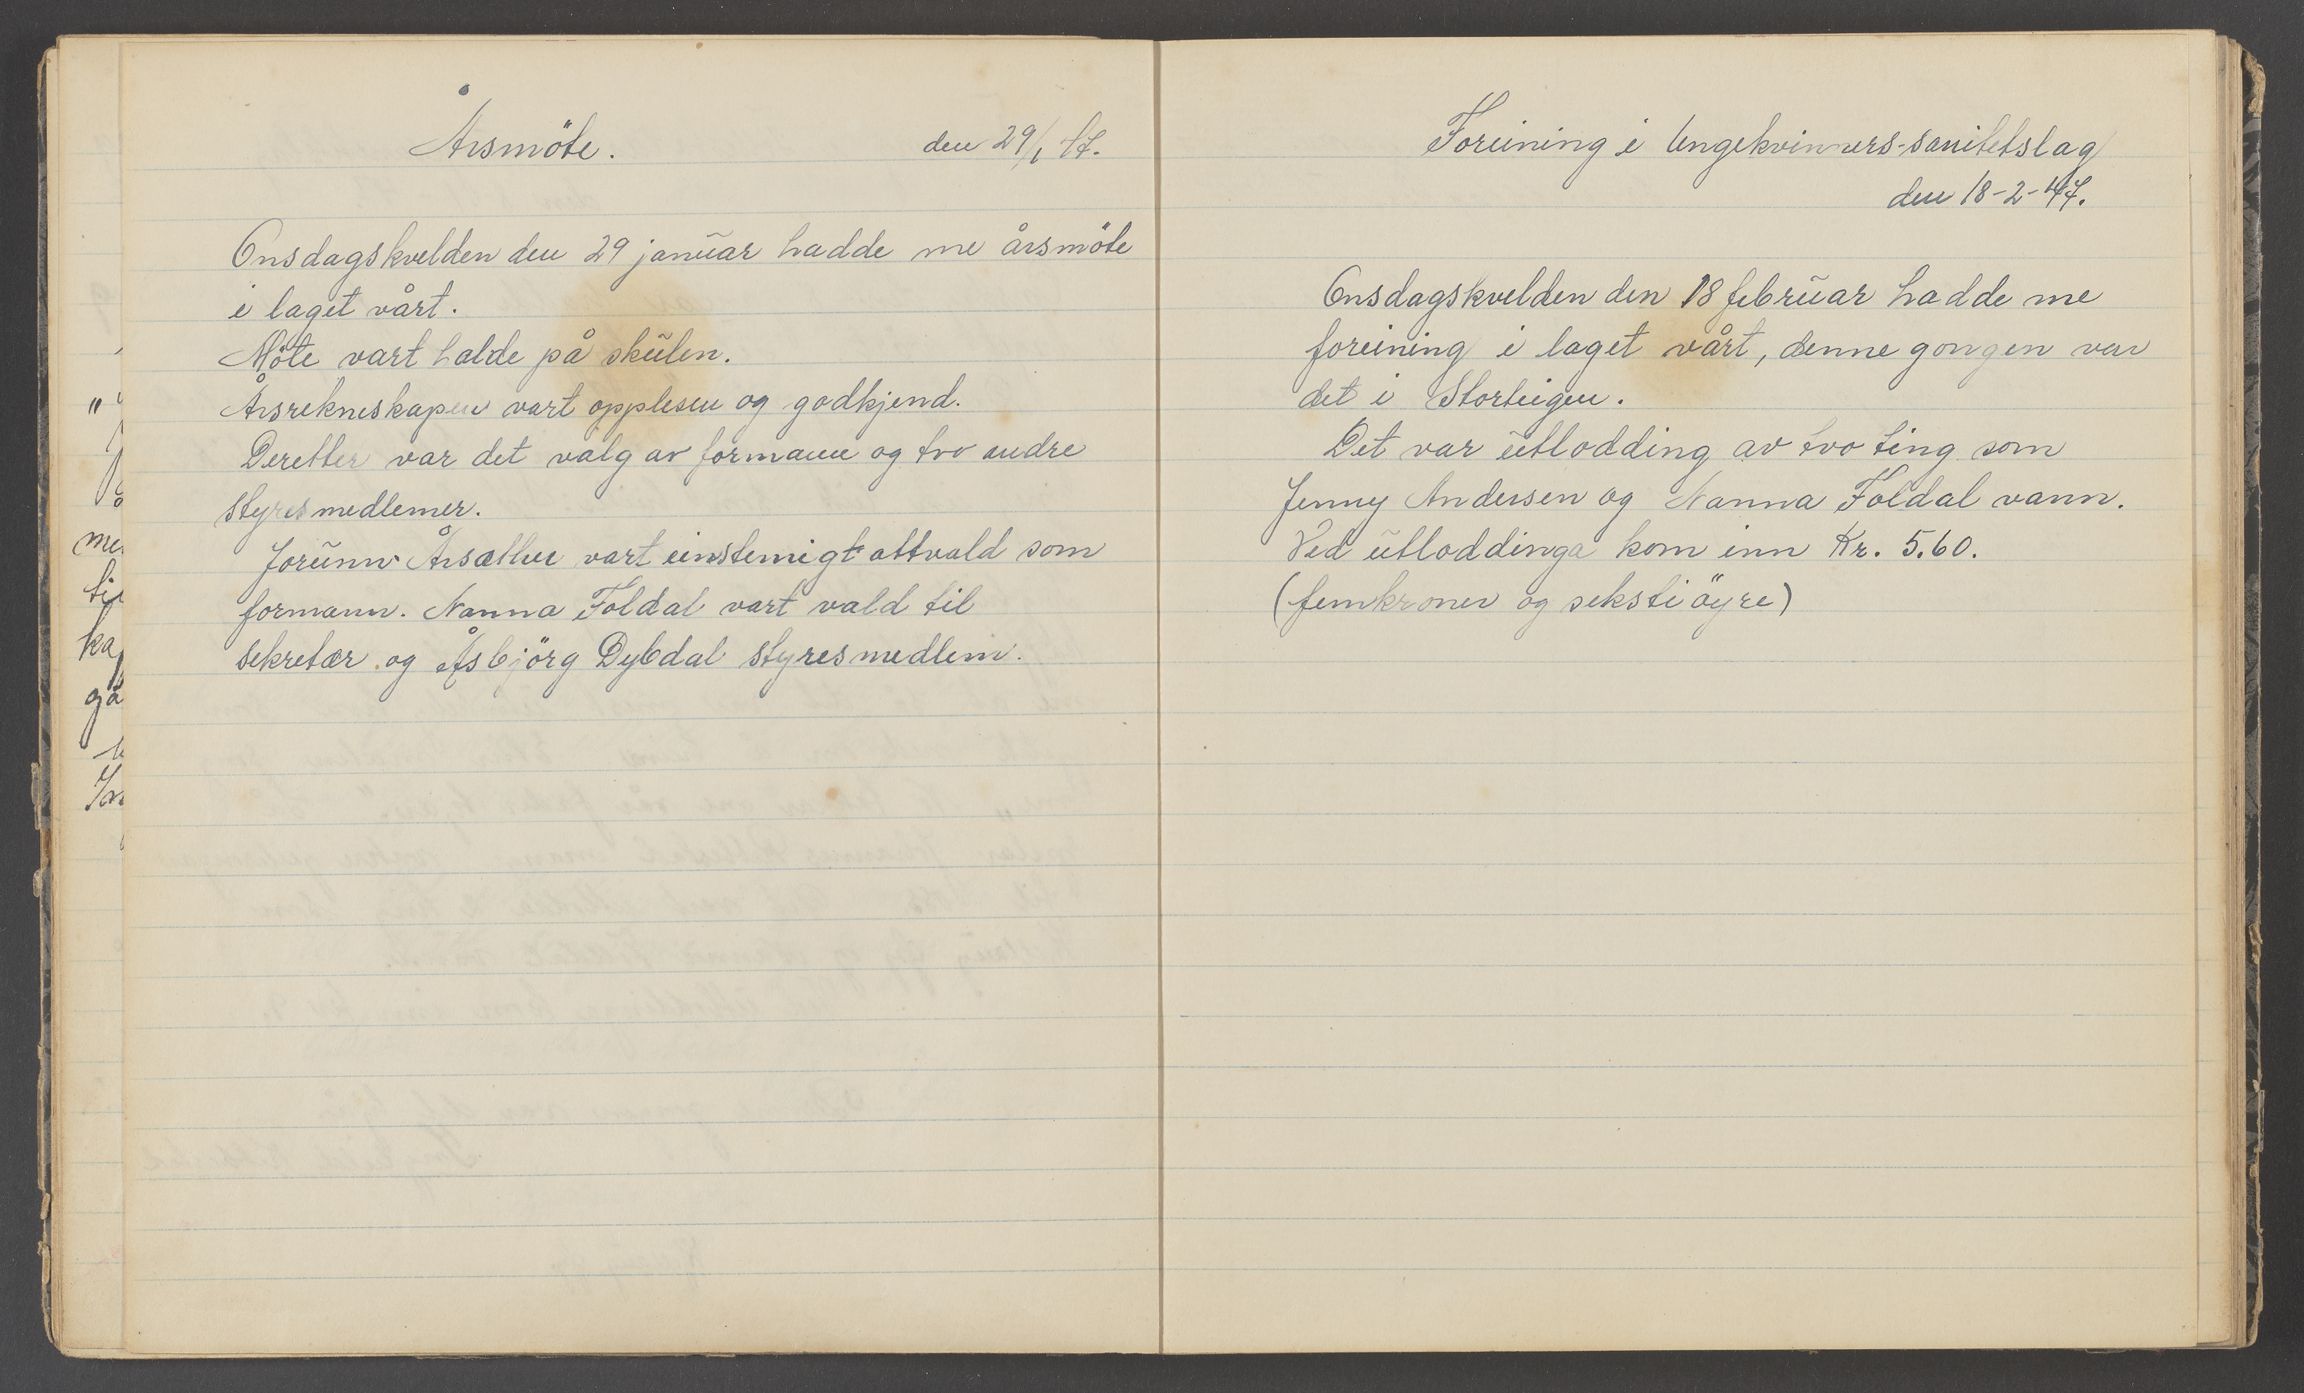 Årsmöte. den 29/1 47.
Onsdagskvelden den 29 januar hadde me årsmöte
i laget vårt.
Möte vart halde på skulen.
Årsrekneskapen vart opplesen og godkjend.
Deretter var det valg av formann og tvo andre
styresmedlemer.
Jorunn Årsæther vart einstemigt attvald som
formann. Nanna Foldal vart vald til
sekretær og Åsbjörg Dybdal styresmedlem.
Foreining i Ungekvinners-sanitetslag
den 18-2-47.
Onsdagskvelden den 18 februar hadde me
foreining i laget vårt, denne gongen var
det i Storteigen.
Det var utlodding av tvo ting som
Jenny Andersen og Nanna Foldal vann.
Ved utloddinga kom inn Kr. 5.60.
(femkroner og seksti öyre)